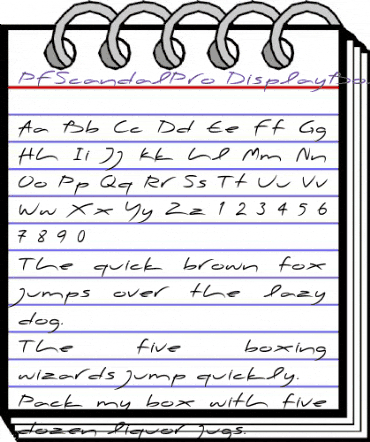 PFScandalPro Displayboo
Aa Bb Cc Dd Ee Ff Gg
Hh Ii Jj Kk Ll Mm Nn
Oo Pp Qq Rr Ss Tt Uu Vv
Ww Xx Yy Zz 1 2 3 4 5 6
7 8 9 0
The quick brown fox
jumps over the lazy
dog.
The five boxing
wizards jump quickly.
Pack my box with five
dozen liquor jugs.